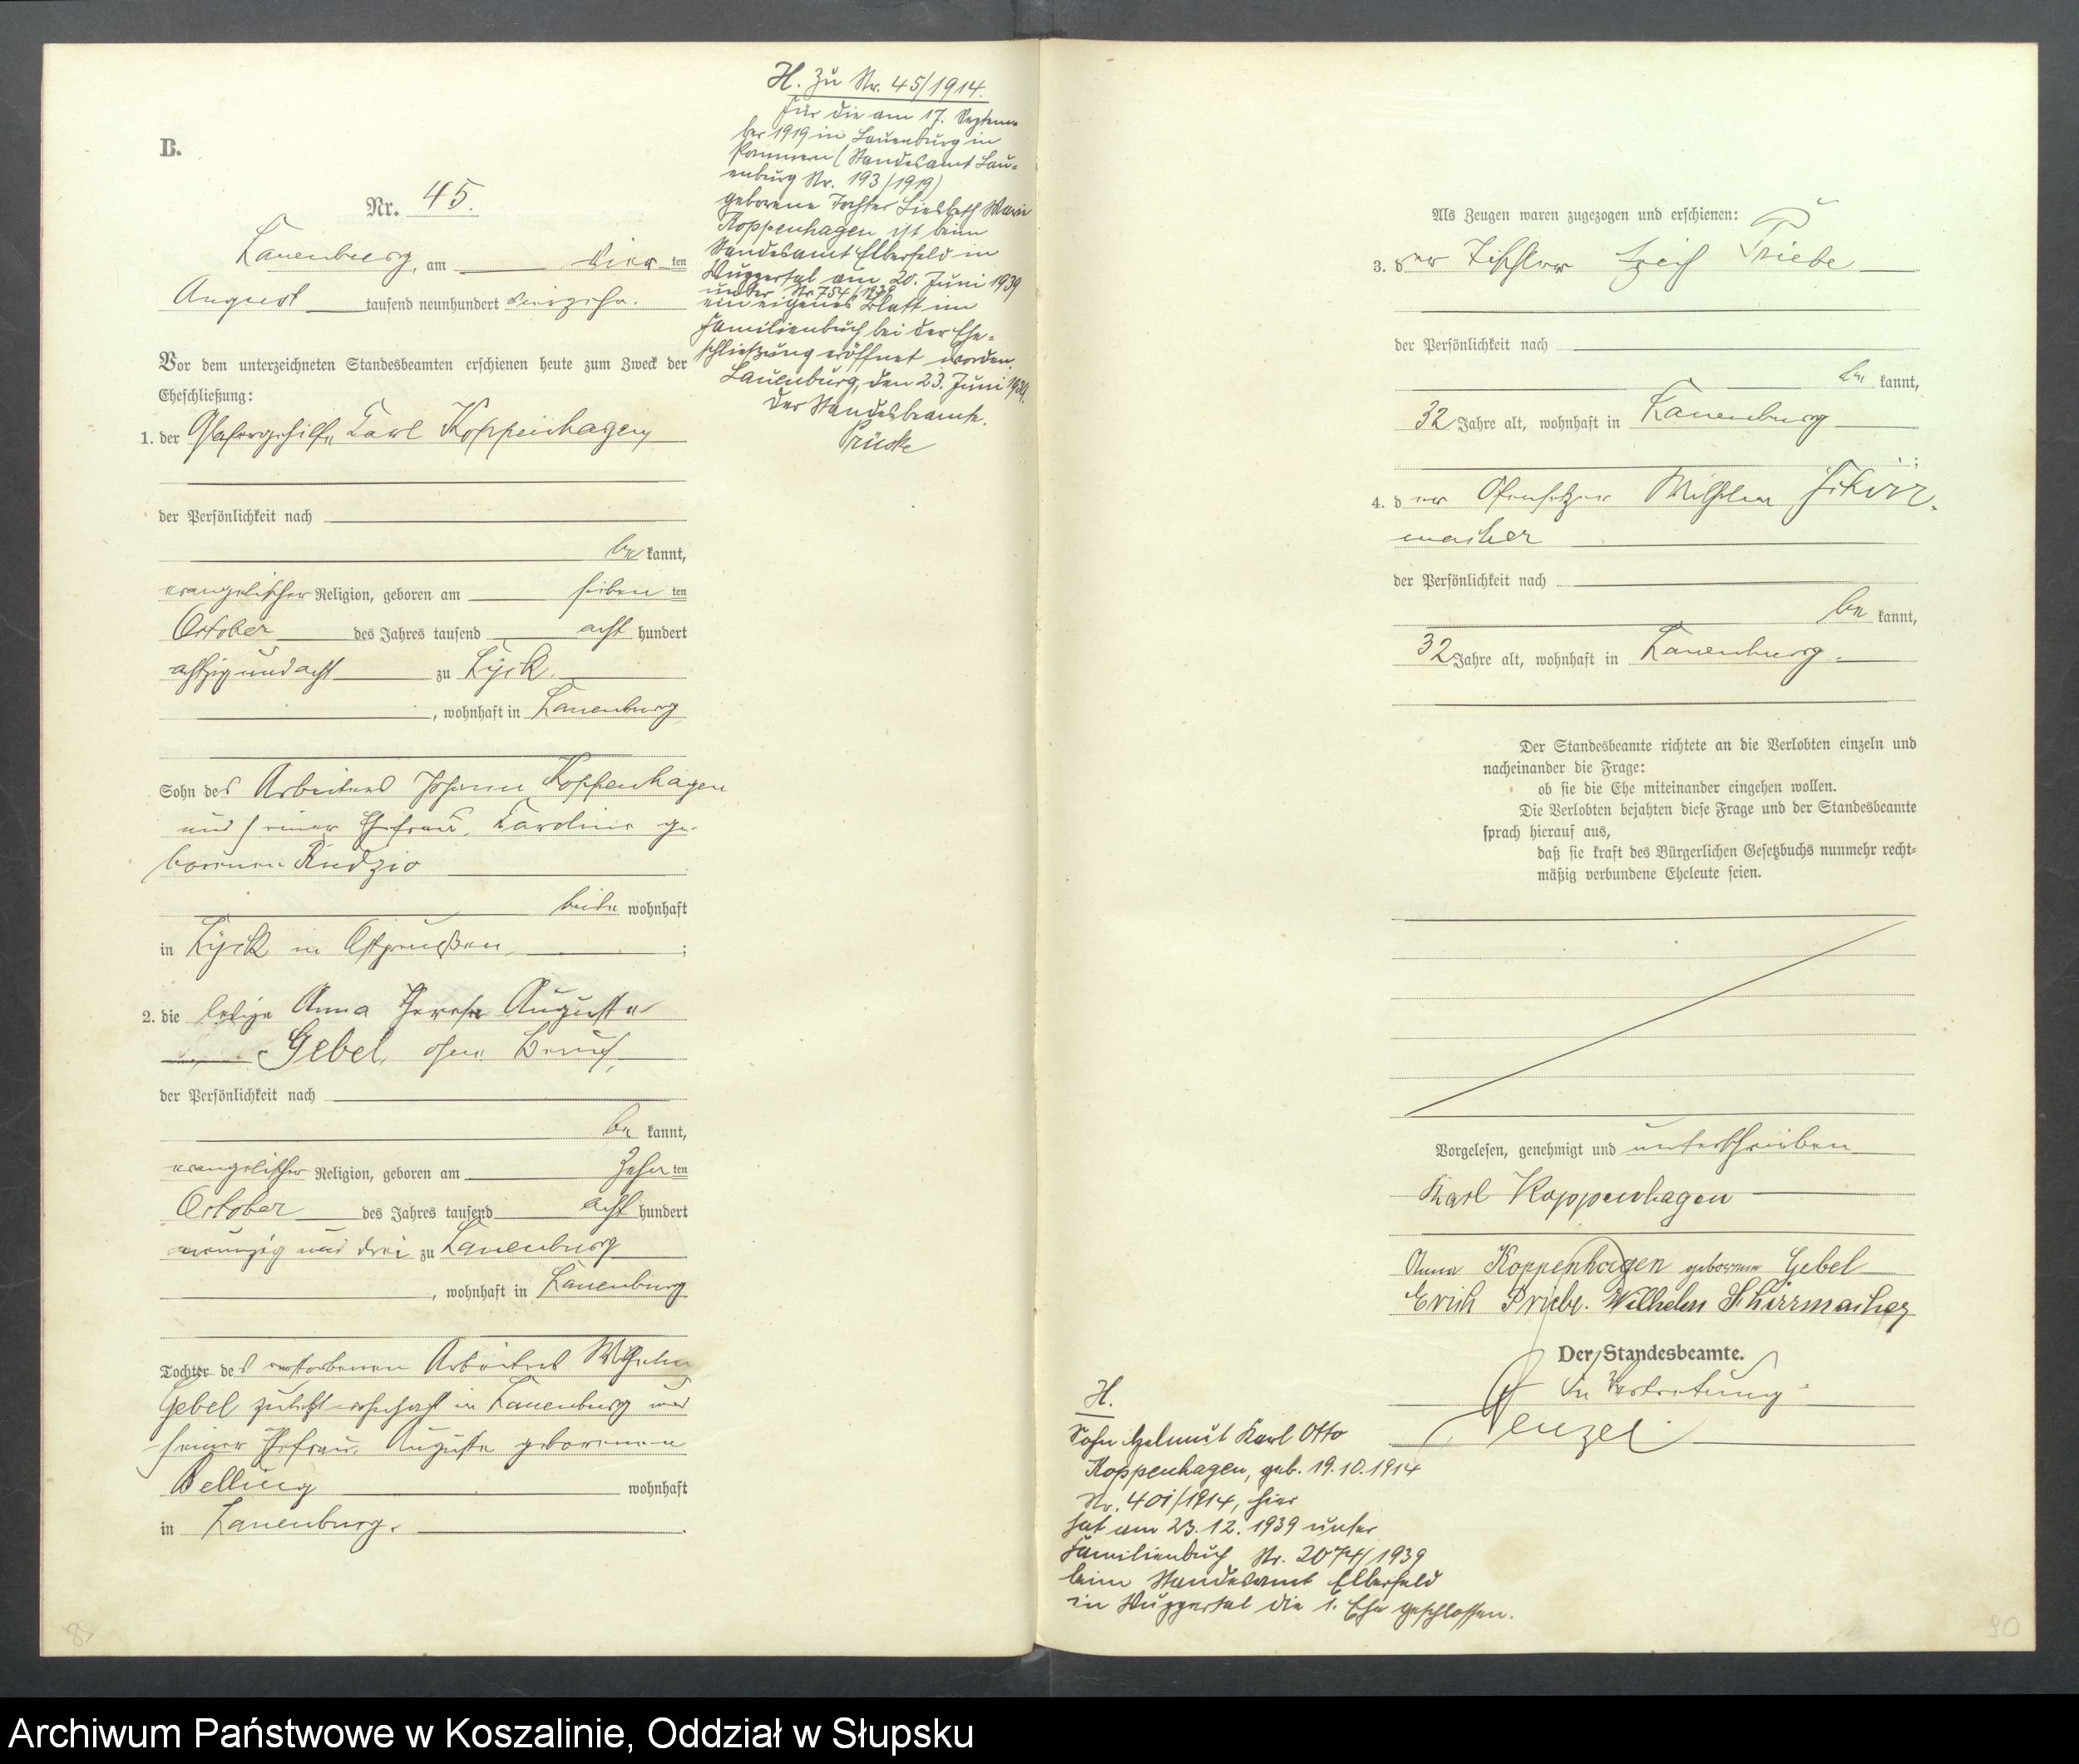 B.
Nr. 45.
Lauenburg, am vier ten
August tausend neunhundert vierzehn.
Vor dem unterzeichneten Standesbeamten erschienen heute zum Zweck der
Eheschließung:
1. der Glasergehilfe Karl Koppenhagen,
der Persönlichkeit nach
be kannt,
evangelischer Religion, geboren am sieben ten
October des Jahres tausend acht hundert
achtzig und acht zu Lyck.
, wohnhaft in Lauenburg
Sohn des Arbeiters Johann Koppenhagen
und seiner Ehefrau, Karoline ge-
borenen Rudzio
beide wohnhaft
in Lyck in Ostpreußen, ;
2. die ledige Anna Therese Auguste
Gebel, ohne Beruf,
der Persönlichkeit nach
be kannt,
evangelischer Religion, geboren am zehn ten
October des Jahres tausend acht hundert
neunzig und drei zu Lauenburg
, wohnhaft in Lauenburg
Tochter des verstorbenen Arbeiters Wilhelm
Gebel zuletzt wohnhaft in Lauenburg und
seiner Ehefrau Auguste geborenen
Belling wohnhaft
in Lauenburg.
H. Zu Nr. 45/1914.
Für die am 17. Septem-
ber 1919 in Lauenburg in
Pommern (Standesamt Lau-
enburg Nr. 193/1919)
geborene Tochter Liesbeth Marie
Koppenhagen ist beim
Standesamt Elberfeld in
Wuppertal am 20. Juni 1939
unter Nr. 754/1939
ein eigenes Blatt im
Familienbuch bei der Ehe-
schließung eröffnet worden.
Lauenburg, den 23. Juni 1939.
Der Standesbeamte.
Als Zeugen waren zugezogen und erschienen:
3. der Tischler Erich Priebe
der Persönlichkeit nach
be kannt,
32 Jahre alt, wohnhaft in Lauenburg
;
4. der Ofensetzer Wilhelm Schirr-
macher
der Persönlichkeit nach
be kannt,
32 Jahre alt, wohnhaft in Lauenburg.
Der Standesbeamte richtete an die Verlobten einzeln und
nacheinander die Frage:
ob sie die Ehe miteinander eingehen wollen.
Die Verlobten bejahten diese Frage und der Standesbeamte
sprach hierauf aus,
daß sie kraft des Bürgerlichen Gesetzbuchs nunmehr recht-
mäßig verbundene Eheleute seien.
Vorgelesen, genehmigt und unterschrieben
Karl Koppenhagen
Anna Koppenhagen geborene Gebel
Erich Priebe. Wilhelm Schirrmacher
Der Standesbeamte.
In Vertretung
Wenzel
H.
Sohn Helmut Karl Otto
Koppenhagen, geb. 19.10.1914
Nr. 401/1914, hier
hat am 23.12.1939 unter
Familienbuch Nr. 2074/1939
beim Standesamt Elberfeld
in Wuppertal die 1. Ehe geschlossen.
90
Archiwum Państwowe w Koszalinie, Oddział w Słupsku